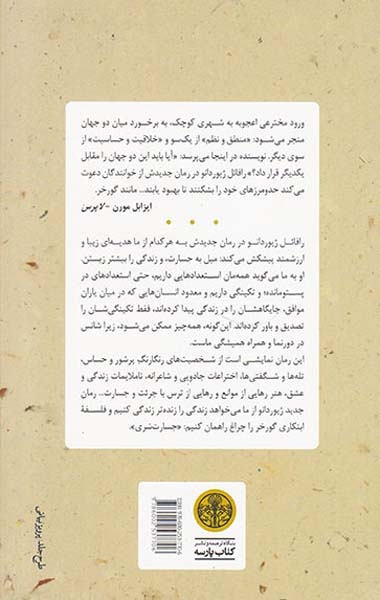 ورود مخترعی اعجوبه به شهری کوچک، به برخورد میان دو جهان
منجر می‌شود: «منطق و نظم» از یک‌سو و «خلاقیت و حساسیت» از
سوی دیگر. نویسنده در اینجا می‌پرسد: «آیا باید این دو جهان را مقابل
یکدیگر قرار داد؟» رافائل ژیوردانو در رمان جدیدش از خوانندگان دعوت
می‌کند حدومرزهای خود را بشکنند تا بهبود یابند... مانند گورخر.
ایزابل مورن - لاپرس
رافائل ژیوردانو در رمان جدیدش به هرکدام از ما هدیه‌ای زیبا و
ارزشمند پیشکش می‌کند: میل به جسارت، و زندگی را بیشتر زیستن.
او به ما می‌گوید همه‌مان استعدادهایی داریم، حتی استعدادهای در
پستومانده؛ و تکینگی داریم و معدود انسان‌هایی که در میان یاران
موافق، جایگاهشان را در زندگی پیدا کرده‌اند، فقط تکینگی‌شان را
تصدیق و باور کرده‌اند. این‌گونه، همه‌چیز ممکن می‌شود، زیرا شانس
در دورنما و همراه همیشگی ماست.
این رمان نمایشی است از شخصیت‌های رنگارنگ، پرشور و حساس،
تله‌ها و شگفتی‌ها، اختراعات جادویی و شاعرانه، ناملایمات زندگی و
عشق، هنر رهایی از موانع و رهایی از ترس با جرئت و جسارت... رمان
جدید ژیوردانو از ما می‌خواهد زندگی را زنده‌تر زندگی کنیم و فلسفهٔ
ابتکاری گورخر را چراغ راهمان کنیم: «جسارت‌تَری».
بنگاه ترجمه و نشر
کتاب پارسه
طرح جلد: پرویز بیانی